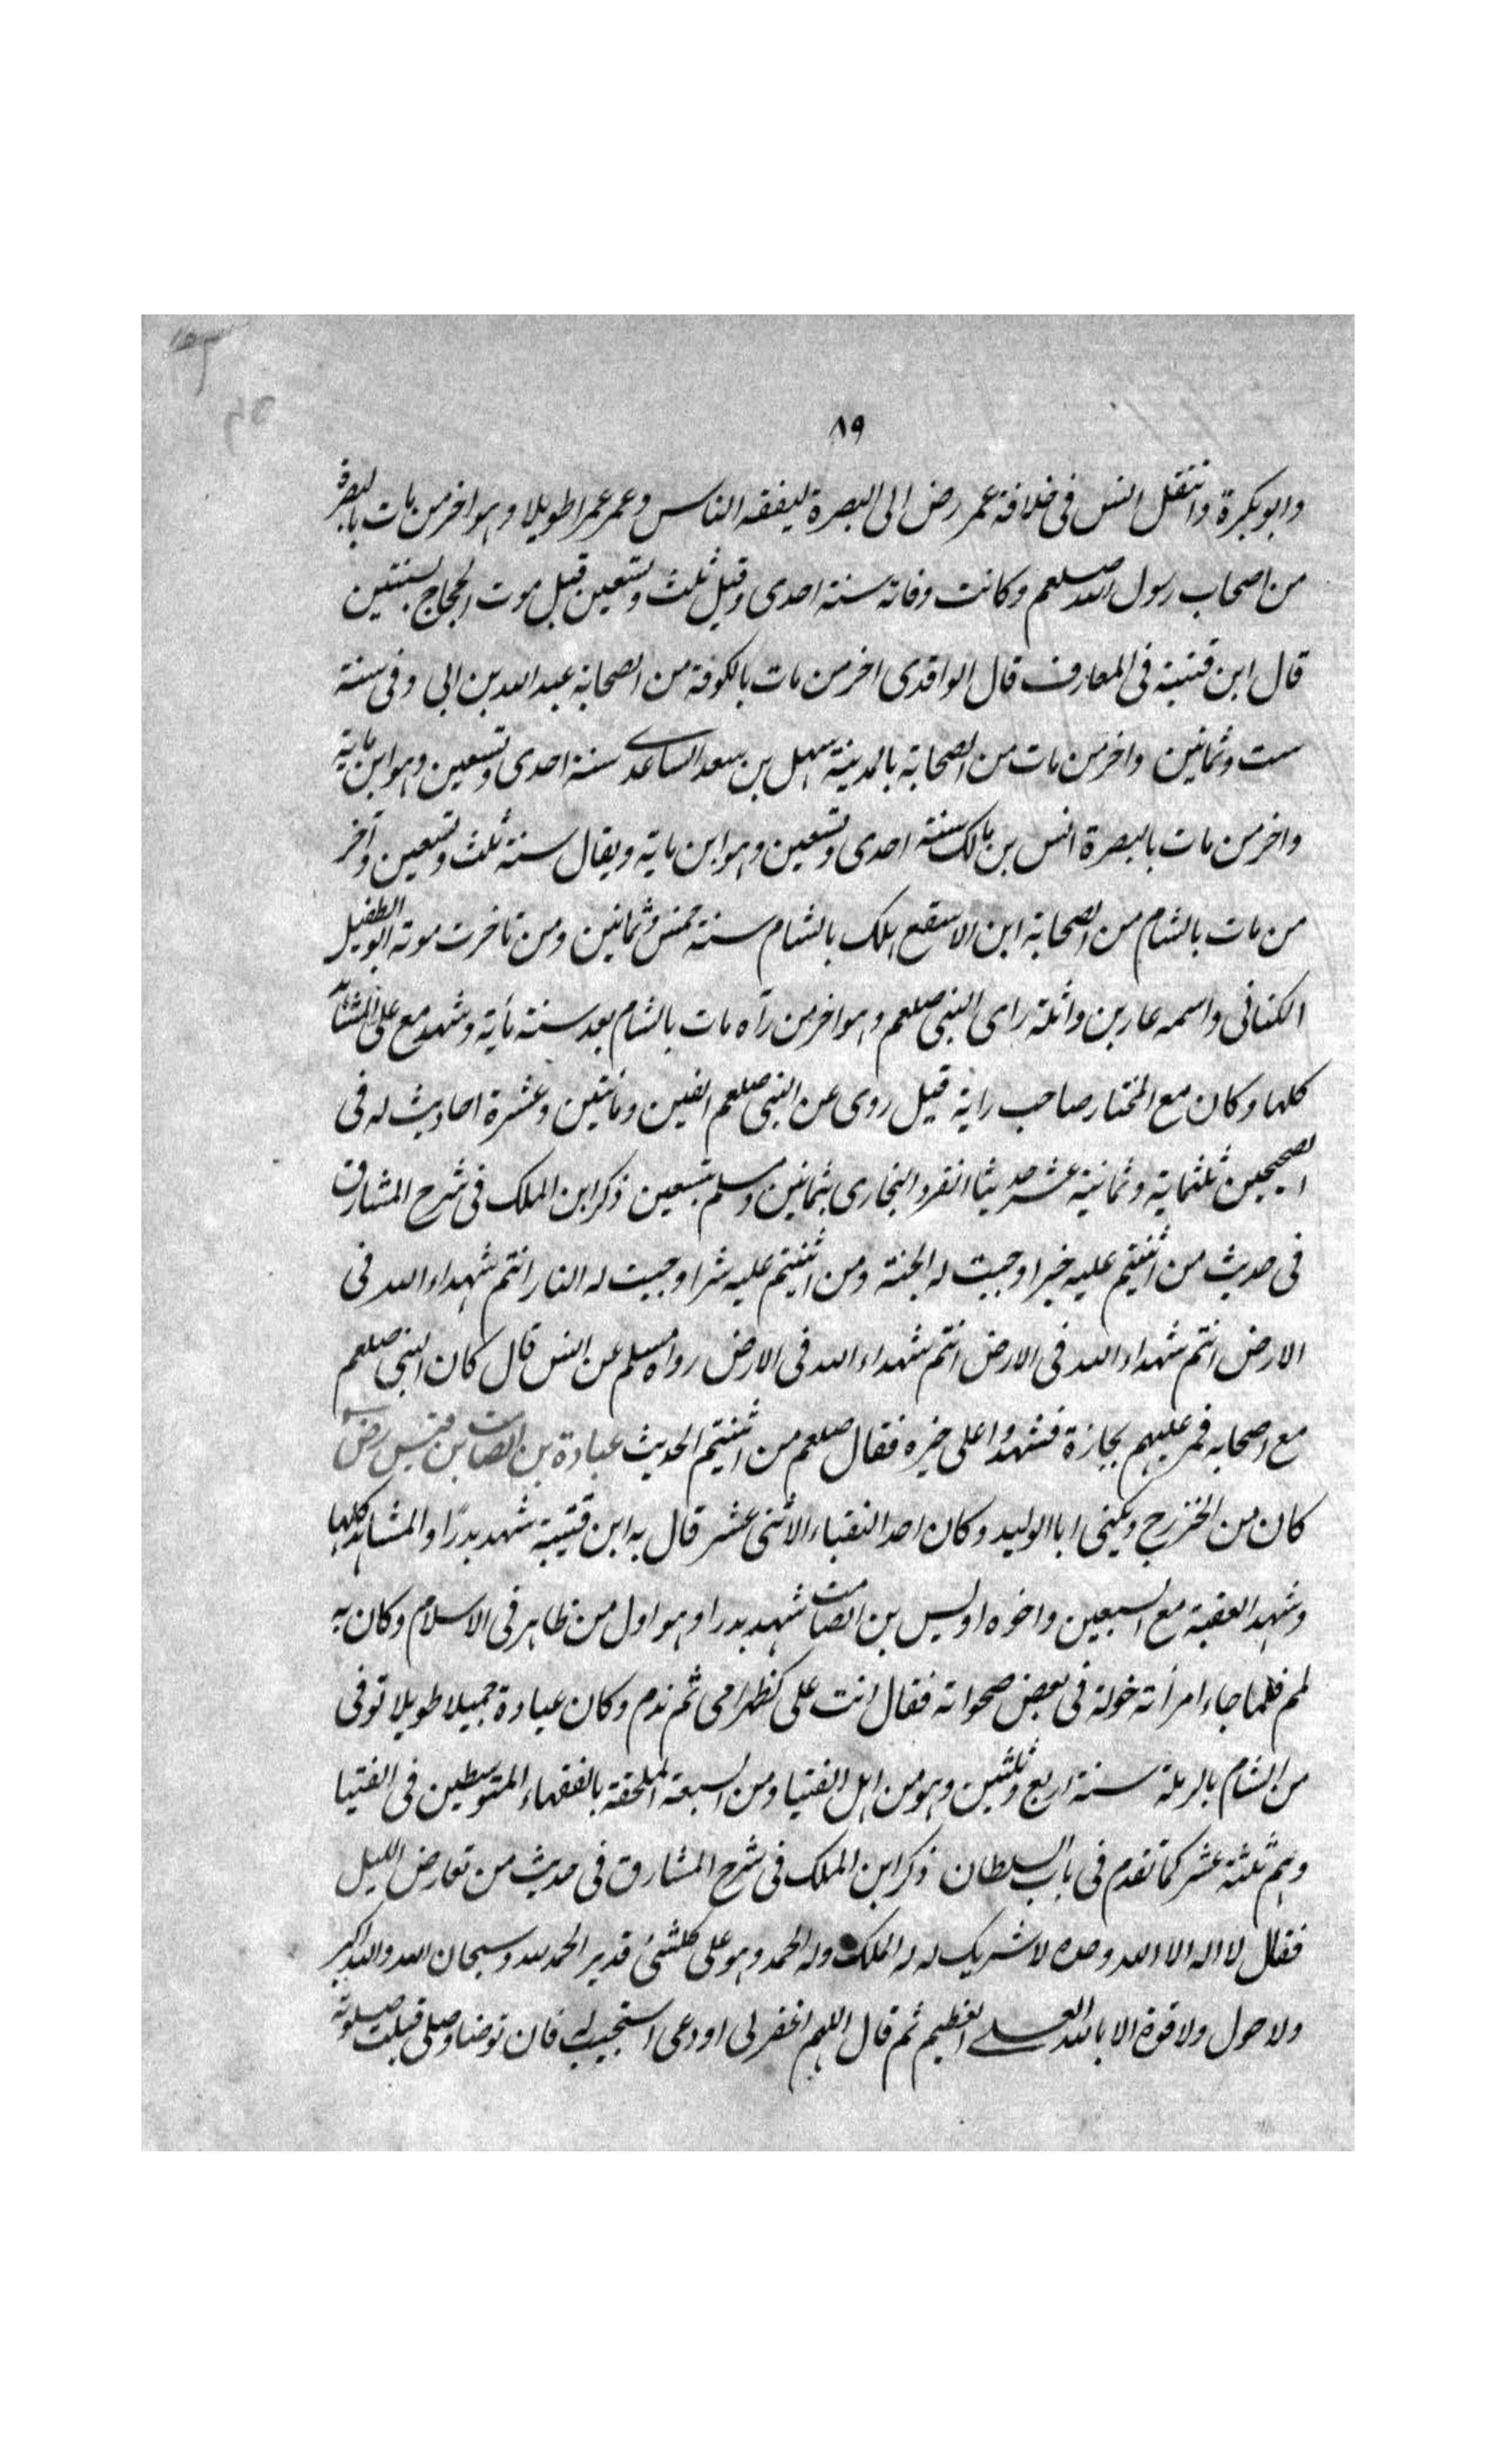 ٨٩
وابو بكرة وانتقل انس فى خلافة عمر رض الى البصرة ليفقه الناس وعمر عمرا طويلا وهو اخر من مات بالبصرة
من اصحاب رسول الله صلعم وكانت وفاته سنة احدى وقيل ثلث وتسعين قبل موت الحجاج بسنتين
قال ابن قتيبة فى المعارف قال الواقدى اخر من مات بالكوفة من الصحابة عبد الله بن ابى وفى سنة
ست وثمانين واخر من مات من الصحابة بالمدينة سهل بن سعد الساعدى سنة احدى وتسعين وهو ابن ماية
واخر من مات بالبصرة انس بن مالك سنة احدى وتسعين وهو ابن ماية ويقال سنة ثلث وتسعين وآخر
من مات بالشام من الصحابة ابن الاسقع هلك بالشام سنة خمس وثمانين ومن تاخرت موته ابو الطفيل
الكنانى واسمه عامر بن واثلة راى النبى صلعم وهو اخر من رآه مات بالشام بعد سنة مأية وشهد مع على المشاهد
كلها وكان مع المختار صاحب راية قيل روى عن النبى صلعم الفين ومأتين وعشرة احاديث له فى
الصحيحين ثلثماية وثمانية عشر حديثا انفرد البخارى بثمانين ومسلم بتسعين ذكر ابن الملك فى شرح المشارق
فى حديث من اثنيتم عليه خيرا وجبت له الجنة ومن اثنيتم عليه شرا وجبت له النار انتم شهداء الله فى
الارض انتم شهداء الله فى الارض انتم شهداء الله فى الارض رواه مسلم عن انس قال كان النبى صلعم
مع اصحابه فمر عليهم بجازة فشهدوا على خيره فقال صلعم من اثنيتم الحديث عبادة بن الصامت بن قيس رض
كان من الخزرج ويكنى ابا الوليد وكان احد النقباء الاثنى عشر قال به ابن قتيبة شهد بدرًا والمشاهد كلها
وشهد العقبة مع السبعين واخوه اويس بن الصامت شهد بدرا وهو اول من ظاهر فى الاسلام وكان به
لمم فلما جاء امرأته خولة فى بعض صحواته فقال انت على كظهر امى ثم ندم وكان عبادة جميلا طويلا توفى
من الشام بالرملة سنة اربع وثلثين وهو من اهل الفتيا ومن السبعة الملحقة بالفقهاء المتوسطين فى الفتيا
وهم ثلثة عشر كما تقدم فى باب السلطان ذكر ابن الملك فى شرح المشارق فى حديث من تعارض الليل
فقال لا اله الا الله وحده لا شريك له له الملك وله الحمد وهو على كلشئ قدير الحمد لله وسبحان الله والله اكبر
ولا حول ولا قوة الا بالله العلى العظيم ثم قال اللهم اغفر لى او دعى استجيب له فان توضا وصلى قبلت صلوته